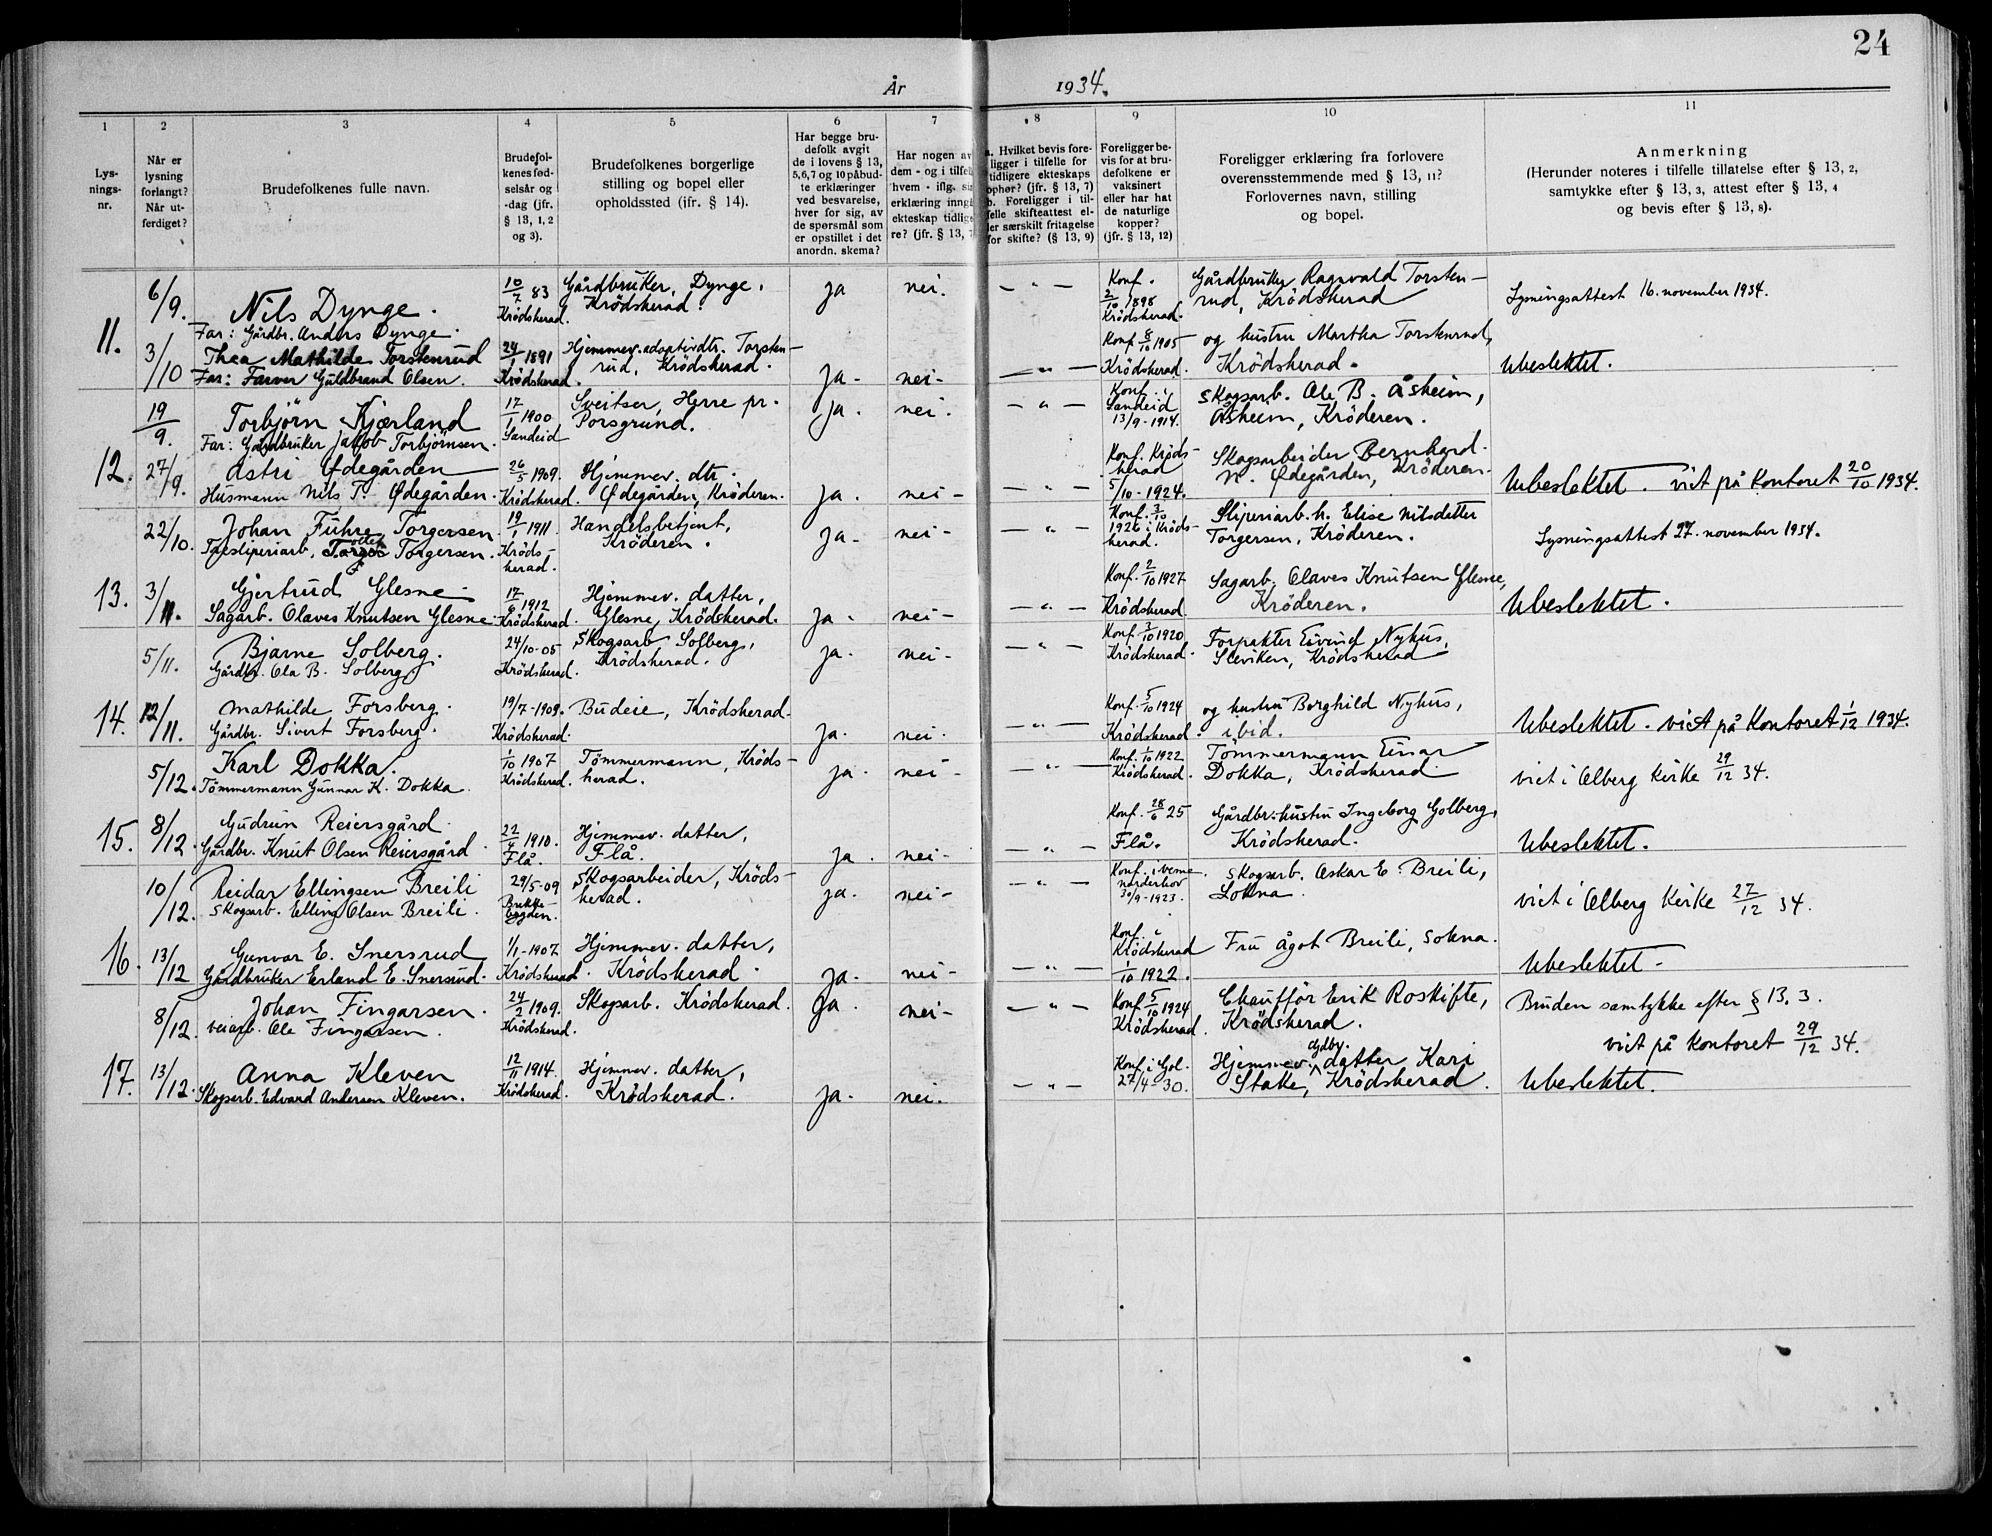 24
År 1934.
1 2 3 4 5 6 7 8 9 10 11
Lys-
nings-
nr.
Når er
lysning
forlangt?
Når ut-
ferdiget?
Brudefolkenes fulle navn.
Brudefol-
kenes fød-
selsår og
-dag (jfr.
§ 13, 1, 2
og 3).
Brudefolkenes borgerlige
stilling og bopel eller
opholdssted (ifr. § 14).
Har begge bru-
defolk avgit
de i lovens § 13,
5,6,7 og 10 påbud-
te erklæringer
ved besvarelse,
hver for sig, av
de spørsmål som
er opstillet i det
anordn. skema?
Har nogen av
dem - og i tilfel
hvem - iflg. si
erklæring inngå
ekteskap tidlige
re? (jfr. § 13, 7
a. Hvilket bevis fore-
ligger i tilfelle for
tidligere ekteskaps
ophør? (jfr. § 13, 7)
b. Foreligger i til-
felle skifteattest el-
ler særskilt fritagelse
for skifte? (§ 13, 9)
Foreligger be-
vis for at bru-
defolkene er
vaksinert
eller har hat
de naturlige
kopper?
(jfr. § 13, 12)
Foreligger erklæring fra forlovere
overensstemmende med § 13, 11?
Forlovernes navn, stilling
og bopel.
Anmerkning
(Herunder noteres i tilfelle tillatelse efter § 13, 2,
samtykke efter § 13, 3, attest efter § 13, 4
og bevis efter § 13, 8).
11.
6/9.
Nils Dynge.
Far: Gårdbr. Anders Dynge.
10/7 83
Krödsherad.
Gårdbruker, Dynge,
Krödsherad.
ja
nei.
— " —
Konf.
2/10 1898
Krödsherad.
Gårdbruker Ragnvald Torsten-
rud, Krödsherad
Lysningsattest 16. november 1934.
3/10
Thea Mathilde Torstenrud
Far: Farver Guldbrand Olsen.
24/1 1891
Krödsherad.
Hjemmev. adoptivdtr. Torsten-
rud, Krödsherad.
ja.
nei-
— " —
Konf. 8/10 1905
Krödsherad.
og hustru Martha Torstenrud,
Krödsherad.
Ubeslektet.
12.
19/9.
Torbjörn Kjærland
Far: Gårdbruker Jakob Torbjörnsen.
17/1 1900
Sandeid
Sveitser, Herre pr.
Porsgrund.
ja.
nei.
— " —
Konf. i
Sandeid
13/9-1914.
Skogsarb. Ole B. Åsheim,
Åsheim, Kröderen.
27/9.
Astri Ødegården
Husmann Nils T. Ødegården.
26/5 1909.
Krödsherad.
Hjemmev. dtr.
Ødegården, Kröderen.
ja.
nei-
— " —
Konf. Kröds-
herad
5/10-1924.
Skogsarbeider Bernhard
N. Ødegården, Kröderen.
Ubeslektet. viet på kontoret 20/10 1934.
13.
22/10.
Johan Fuhre Torgersen.
Tresliperiarb. Torgersen.
19/1 1911.
Kröds-
herad.
Handelsbetjent,
Kröderen.
ja.
nei-
— " —
Konf. 3/10
1926 i Kröds-
herad.
Sliperiarb. h. Elise Nilsdatter
Torgersen, Kröderen.
Lysningsattest 27. november 1934.
3/11.
Gjertrud Glesne.
Sagarb. Olaves Knutsen Glesne.
17/6 1912
Krödsherad.
Hjemmev. datter,
Glesne, Krödsherad.
ja.
nei-
— " —
Konf. 2/10 1927
Krödsherad
Sagarb. Olaves Knutsen Glesne,
Kröderen.
Ubeslektet.
14.
5/11.
Bjarne Solberg.
Gårdbr. Ola B. Solberg
24/10-05
Krödsherad.
Skogsarb. Solberg,
Krödsherad.
ja.
nei-
— " —
Konf. 3/10 1920
Krödsherad.
Forpakter Eivind Nyhus,
Sleviken, Krödsherad
12/11.
Mathilde Forsberg.
Gårdbr. Sivert Forsberg.
19/7-1909.
Krödsherad.
Budeie, Krödsherad.
ja.
nei.
— " —
Konf. 5/10 1924
Krödsherad.
og hustru Borghild Nyhus,
ibid.
Ubeslektet. viet på kontoret 1/12 1934.
15.
5/12.
Karl Dokka.
Tömmermann Gunnar K. Dokka.
1/10 1907
Krödsherad.
Tömmermann, Kröds-
herad.
ja.
nei-
— " —
Konf. 1/10 1922
Krödsherad.
Tömmermann Einar
Dokka, Krödsherad
viet i Olberg kirke 29/12 34.
8/12.
Gudrun Reiersgård.
Gårdbr. Knut Olsen Reiersgård.
22/4 1910.
Flå.
Hjemmev. datter,
Flå.
ja.
nei-
— " —
Konf. 28/6 25
Flå.
Gårdbr.hustru Ingeborg Golberg,
Krödsherad.
Ubeslektet.
16.
10/12.
Reidar Ellingsen Breili
Skogsarb. Elling Olsen Breili.
29/5-09
Skogsarbeider, Kröds-
herad.
ja.
nei-
— " —
Konf. i
Norderhov
30/9-1923.
Skogsarb. Oskar E. Breili,
Sokna.
viet i Olberg kirke 27/12 34.
13/12
Gunvor E. Snersrud
Gårdbruker Erland E. Snersrud.
1/1-1907
Krödsherad.
Hjemmev. datter,
Krödsherad.
ja.
nei-
— " —
Konf. i
Krödsherad
1/10 1922.
Fru Ågot Breili, Sokna.
Ubeslektet-
17.
8/12.
Johan Fingarsen.
Veiarb. Ole Fingarsen.
24/2 1909.
Krödsherad.
Skogsarb. Krödsherad.
ja.
nei-
— " —
Konf. 5/10 1924
Krödsherad.
Chaufför Erik Roskifte,
Krödsherad.
Bruden samtykke efter § 13. 3.
viet på kontoret 29/12 34.
13/12.
Anna Kleven
Skogsarb. Edvard Andersen Kleven.
12/11 1914.
Krödsherad.
Hjemmev. datter,
Krödsherad.
ja.
nei.
— " —
Konf. i Gol.
27/4-30.
Hjemmev. datter Kari
Stake, Krödsherad.
Ubeslektet.